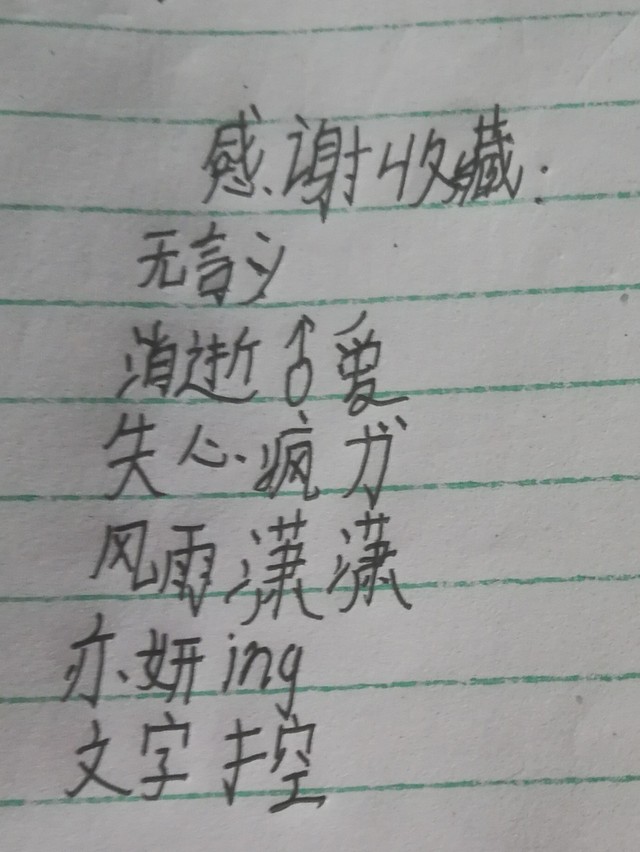 感谢收藏:
无言シ
消逝♂爱
失心疯ガ
风雨潇潇
亦妍ing
文字控